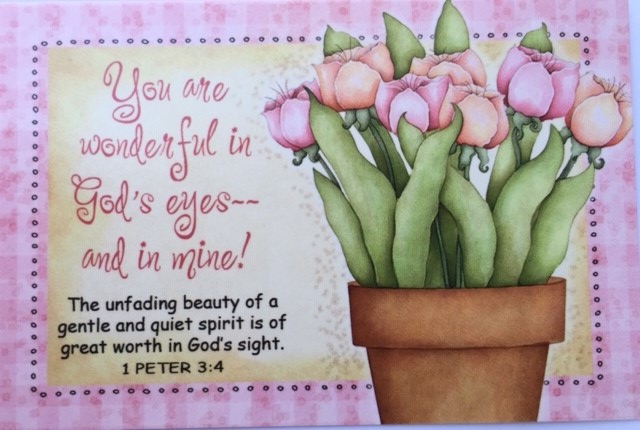 You are
wonderful in
God's eyes--
and in mine!
The unfading beauty of a
gentle and quiet spirit is of
great worth in God's sight.
1 PETER 3:4